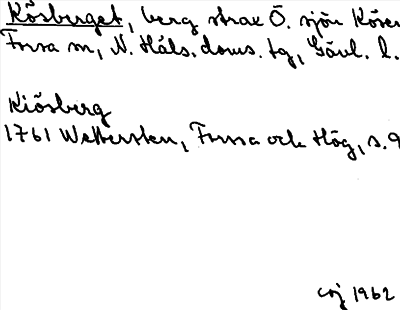 Kösberget, berg strax Ö. sjön Kösen
Forsa sn, N. Häls. doms. tg, Gävl. l.
Kiösberg
1761 Wettersten, Forssa och Hög, s. 9
1962